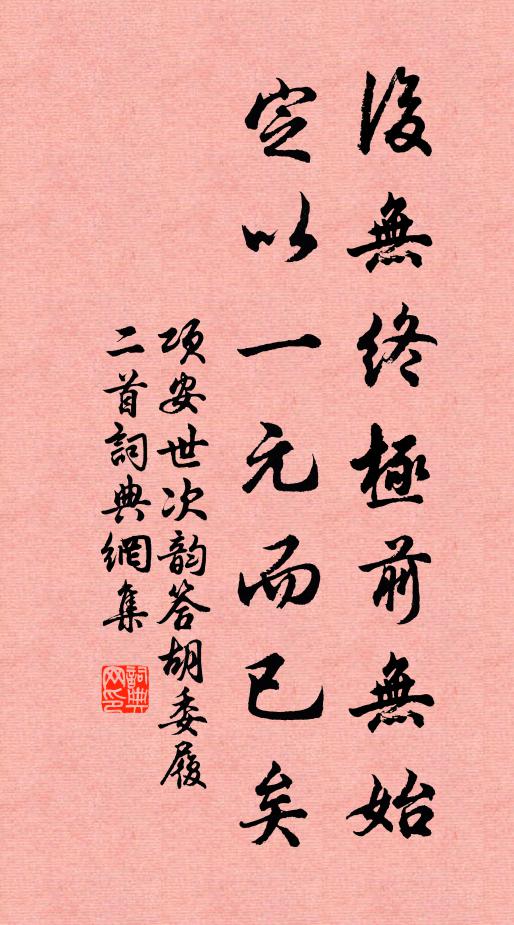 後無終極前無始
定以一元而已矣
项安世次韵答胡委履
二首詞典網集
詞典网印